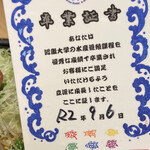 卒業証書
あなたは
近畿大学の水産養殖課程を
優秀な成績で卒業され
お客様にご満足
いただけるよう
立派に成長したことを
ここに証します。
R2年9月6日